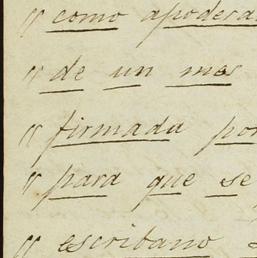 " como apodera
" de un mes
" firmada por
" para que se
" escribano